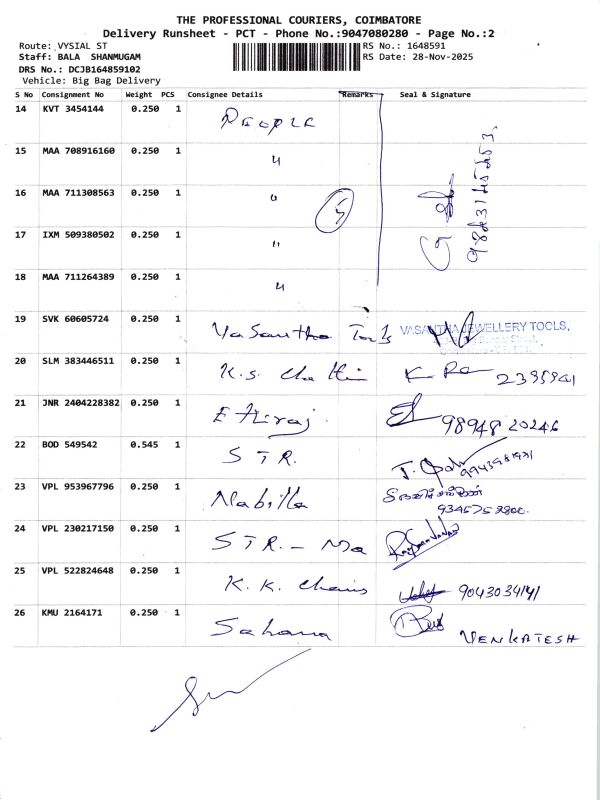 THE PROFESSIONAL COURIERS, COIMBATORE
Delivery Runsheet - PCT - Phone No.:9047080280 - Page No.:2
Route: VYSIAL ST RS No.: 1648591
Staff: BALA SHANMUGAM RS Date: 28-Nov-2025
DRS No.: DCJB164859102
Vehicle: Big Bag Delivery
S No Consignment No Weight PCS Consignee Details Remarks Seal & Signature
14 KVT 3454144 0.250 1 PEOPLE
15 MAA 708916160 0.250 1 "
16 MAA 711308563 0.250 1 " 5
17 IXM 509380502 0.250 1 "
18 MAA 711264389 0.250 1 "
19 SVK 60605724 0.250 1 Vasantha Tools VASANTHA JEWELLERY TOOLS,
20 SLM 383446511 0.250 1 K.S. Chettin 2395941
21 JNR 2404228382 0.250 1 Ethiraj 98948 20246
22 BOD 549542 0.545 1 STR.
23 VPL 953967796 0.250 1 Nabilla
9345752800.
24 VPL 230217150 0.250 1 STR. - Ma
25 VPL 522824648 0.250 1 K.K. Chains 9043034141
26 KMU 2164171 0.250 1 Sahana VENKATESH